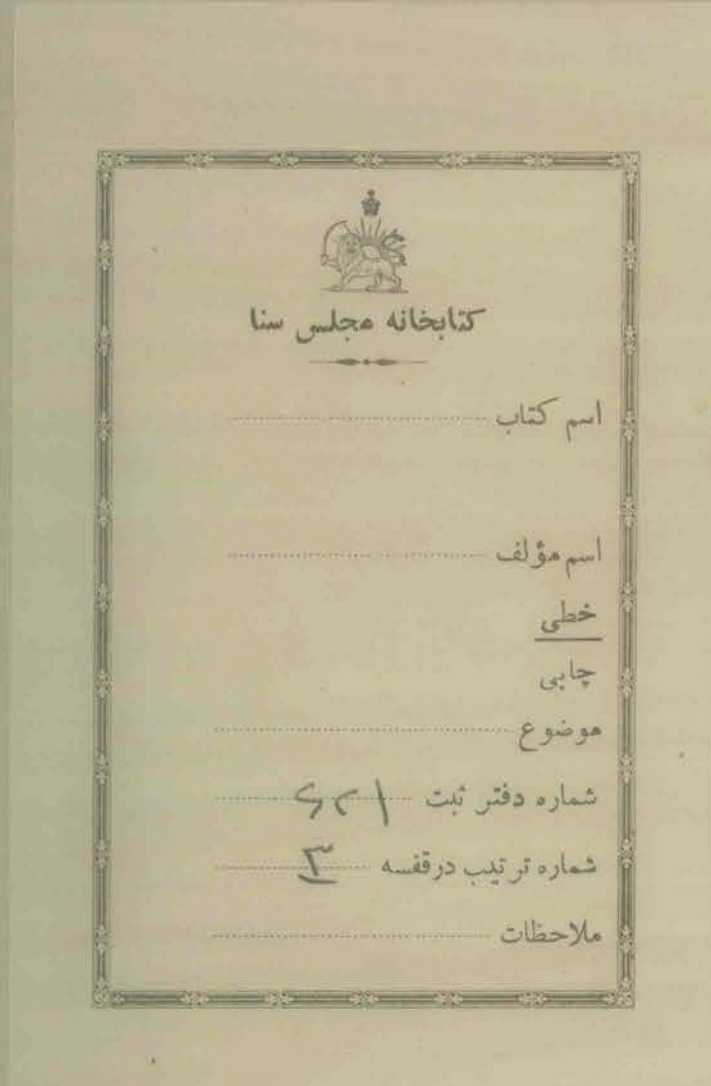 کتابخانه مجلس سنا
اسم کتاب
اسم مؤلف
خطی
چاپی
موضوع
شماره دفتر ثبت
شماره ترتیب در قفسه ۳
ملاحظات